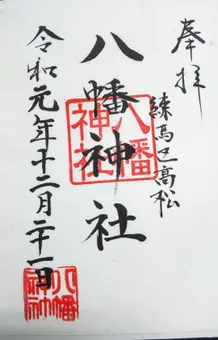 奉拝
練馬区高松
八幡神社
八幡
神社
令和元年十二月二十一日
八幡
神社